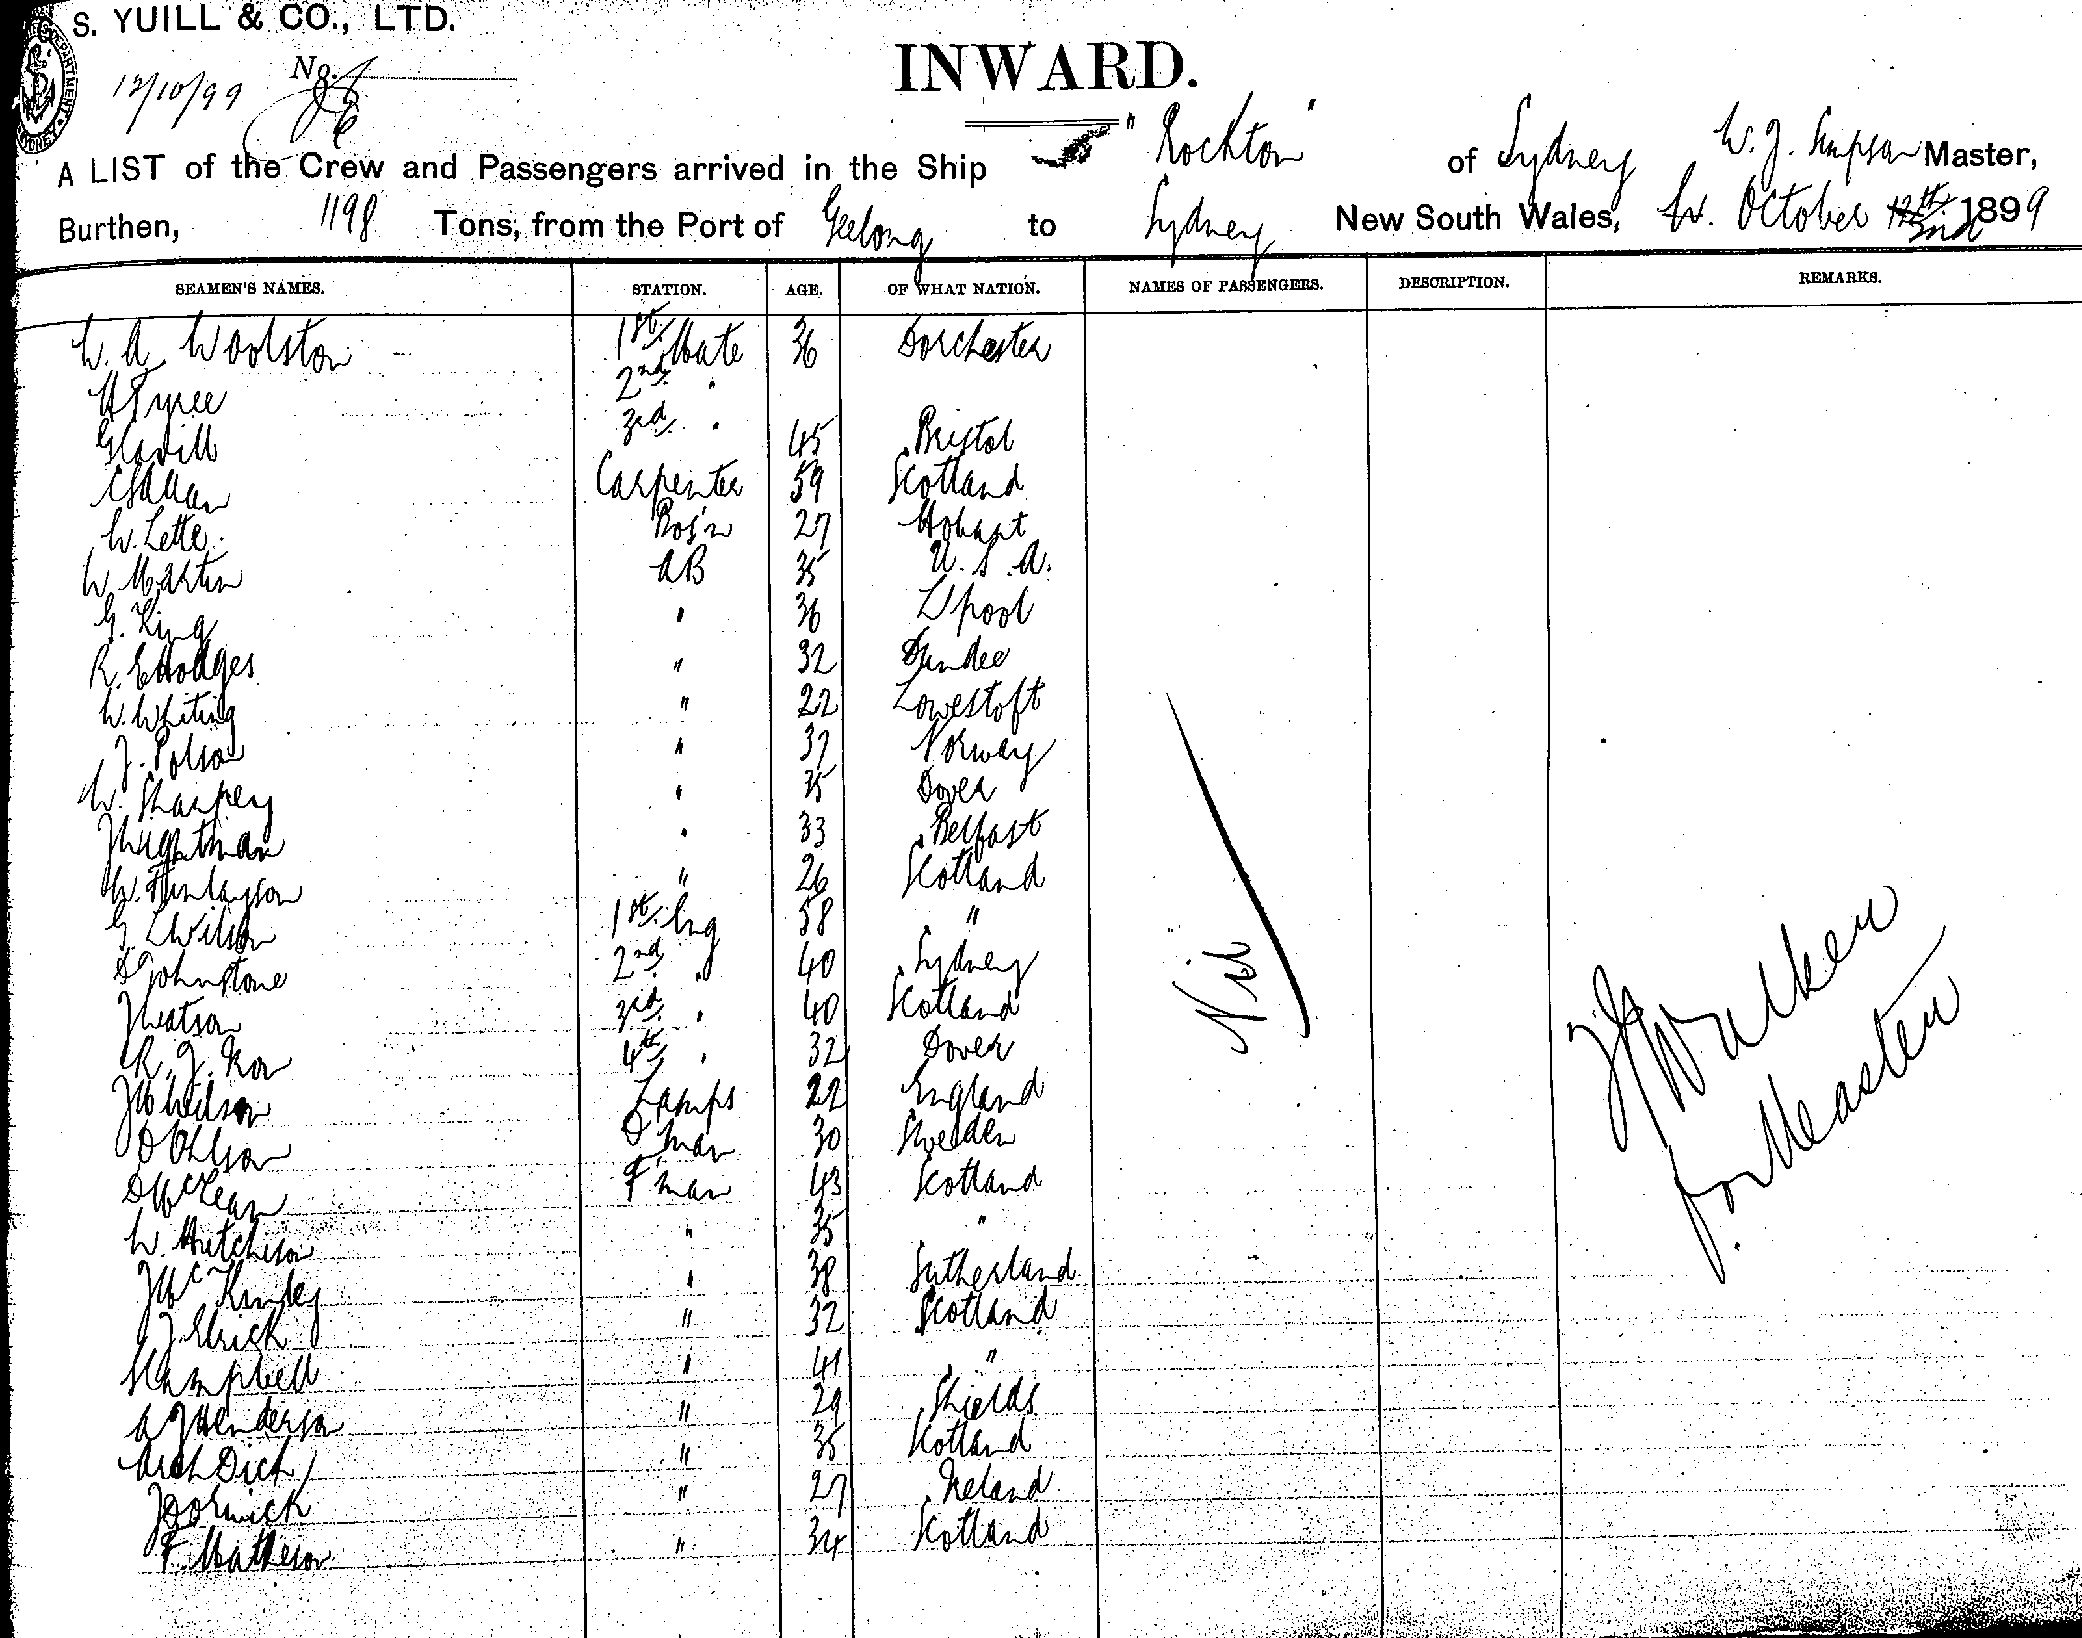 S. YUILL & CO., LTD.
12/10/99 No.
INWARD.
A LIST of the Crew and Passengers arrived in the Ship "Rockton" of Sydney W. J. Master,
Burthen, 1198 Tons, from the Port of Geelong to Sydney New South Wales, October 1899
SEAMEN'S NAMES. STATION. AGE. OF WHAT NATION. NAMES OF PASSENGERS. DESCRIPTION. REMARKS.
W. A. Woolston 1st Mate 36 Dorchester
H Tyree 2nd "
3rd " 45 Bristol
Carpenter 59 Scotland
W. Lette Bos'n 27 Hobart
W Martin AB 35 U.S.A.
G. King " 36 L'pool
R. E Hodges " 32 Dundee
W. Whiting " 22 Lowestoft
J. Polson " 37 Norway
W. Sharpey " 35 Dover
" 33 Belfast
W. Finlayson " 26 Scotland
G. L Wilson 1st Eng 58 "
D Johnstone 2nd " 40 Sydney
J Watson 3rd " 40 Scotland
R. J. 4th " 32 Dover
J W Wilson Lamps 22 England
O Ohlson D'man 30 Sweden
D McLean F'man 43 Scotland
W. Hutcheson " 35 "
J McKinley " 38 Sutherland
J. Elrick " 32 Scotland
Campbell " 41 "
A J Henderson " 29 Shields
Arch Dick " 35 Scotland
J Dornick " 27 Ireland
F. Matheson " 34 Scotland
Nil
Walker
for Master